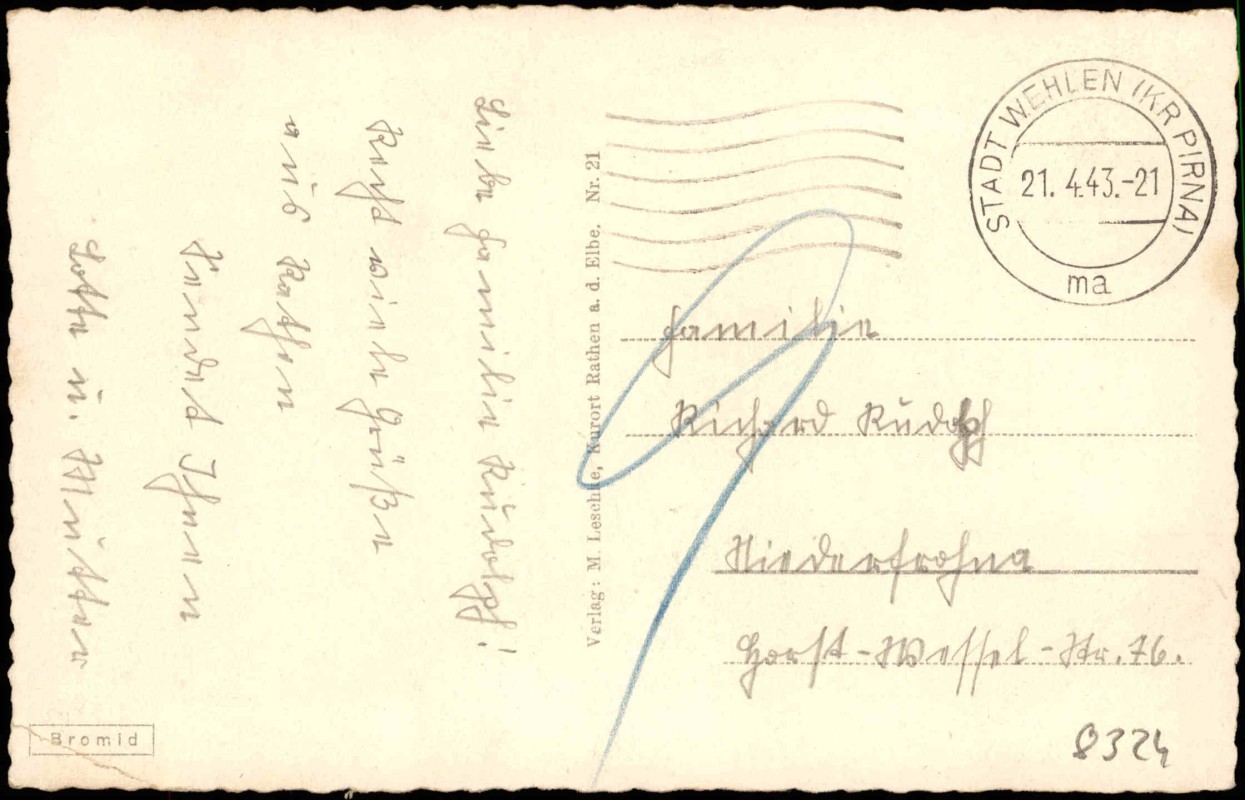 Liebe Familie Rudolph!
Recht viele Grüße
aus Rathen
sendet Ihnen
Lotte u. Mutter
Verlag: M. Leschke, Kurort Rathen a. d. Elbe. Nr. 21
STADT WEHLEN (KR PIRNA)
21. 4.43.-21
ma
Familie
Richard Rudolph
Niederfrohna
Horst-Wessel-Str. 76.
8324
Bromid